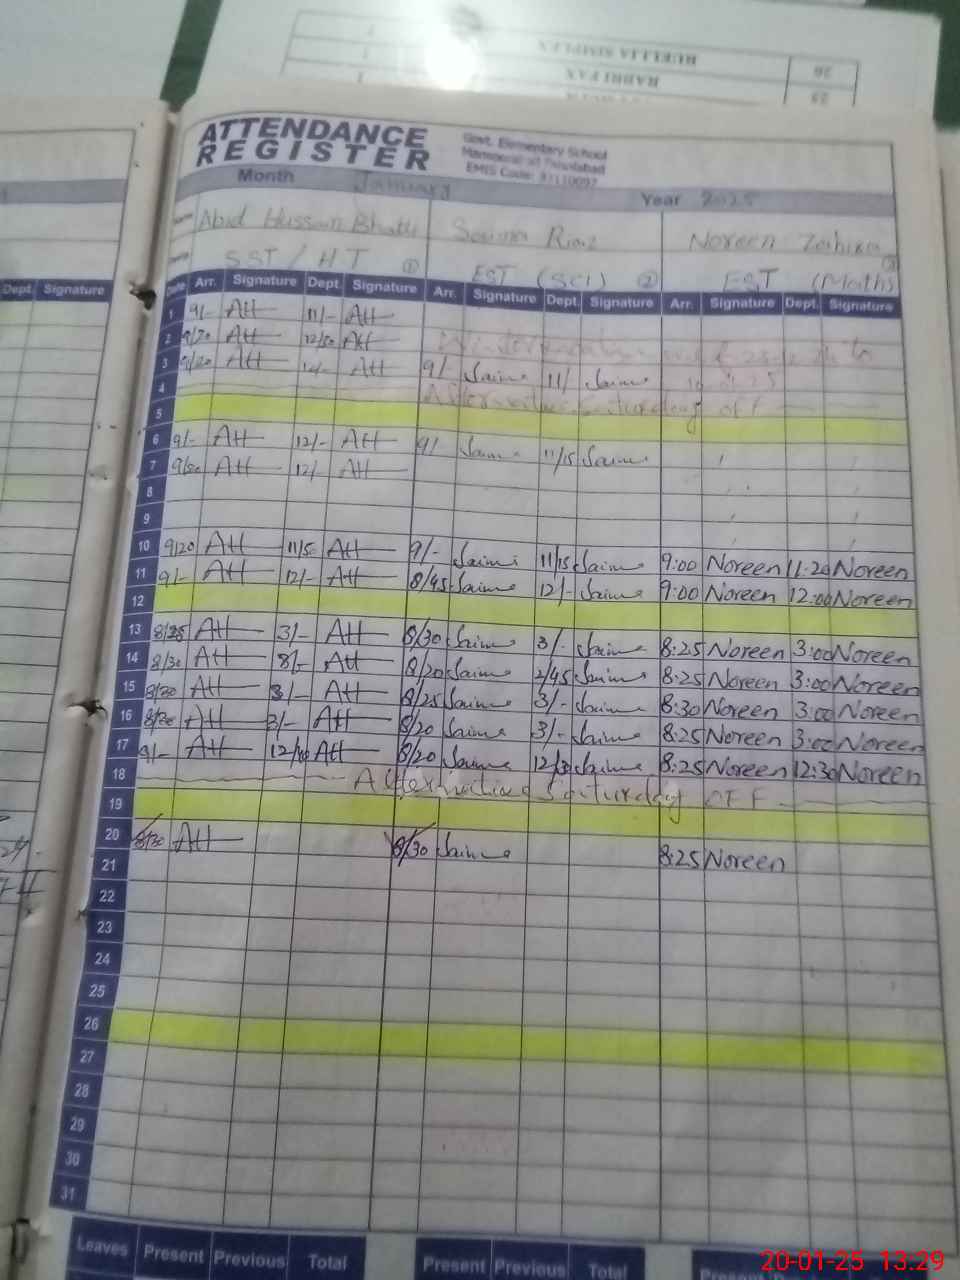 RUELLIA SIMPLEX
26
ATTENDANCE
REGISTER
Govt. Elementary School
EMIS Code:
Month January Year 2025
Abid Hussain Bhatti Saima Riaz Noreen
SST / HT 1 EST (Sci) 2 EST (Maths) 3
Dept. Signature
Date Arr. Signature Dept. Signature Arr. Signature Dept. Signature Arr. Signature Dept. Signature
1 9/- AH 11/- AH
2 9/20 AH 12/50 AH
3 9/20 AH AH 9/- Saima 11/ Saima
4 Alternative Saturday off
5
6 9/- AH 12/- AH 9/ Saima 11/15 Saima
7 9/50 AH 12/- AH
8
9
10 9/20 AH 11/50 AH 9/- Saima 11/15 Saima 9:00 Noreen 11:20 Noreen
11 9/- AH 12/- AH 8/45 Saima 12/- Saima 9:00 Noreen 12:00 Noreen
12
13 8/25 AH 3/- AH 8/30 Saima 3/- Saima 8:25 Noreen 3:00 Noreen
14 8/30 AH 3/- AH 8/20 Saima 2/45 Saima 8:25 Noreen 3:00 Noreen
15 8/30 AH 3/- AH 8/25 Saima 3/- Saima 8:30 Noreen 3:00 Noreen
16 8/30 AH 3/- AH 8/20 Saima 3/- Saima 8:25 Noreen 3:00 Noreen
17 9/- AH 12/40 AH 8/20 Saima 12/3 Saima 8:25 Noreen 12:30 Noreen
18 Alternative Saturday OFF
19
20 8/30 AH 8/30 Saima 8:25 Noreen
21
22
23
24
25
26
27
28
29
30
31
Leaves Present Previous Total Present Previous Total Present
20-01-25 13:29